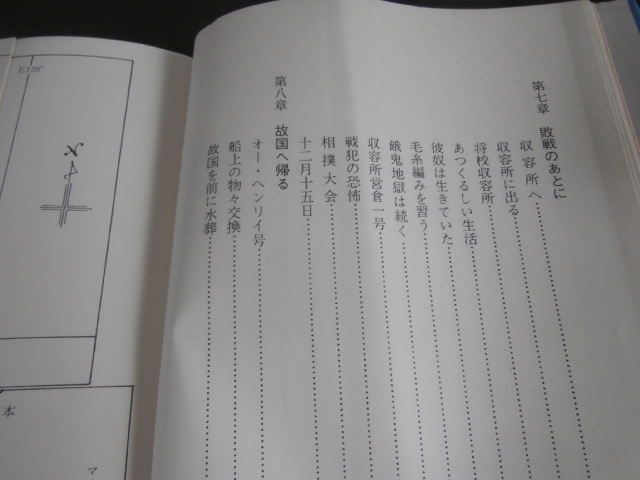 第七章 敗戦のあとに
収容所へ
収容所に出る
将校収容所
あつくるしい生活
彼奴は生きていた
毛糸編みを習う
餓鬼地獄は続く
収容所営倉一号
戦犯の恐怖
相撲大会
十二月十五日
第八章 故国へ帰る
オー・ヘンリイ号
船上の物々交換
故国を前に水葬
E126°
N
本
マ